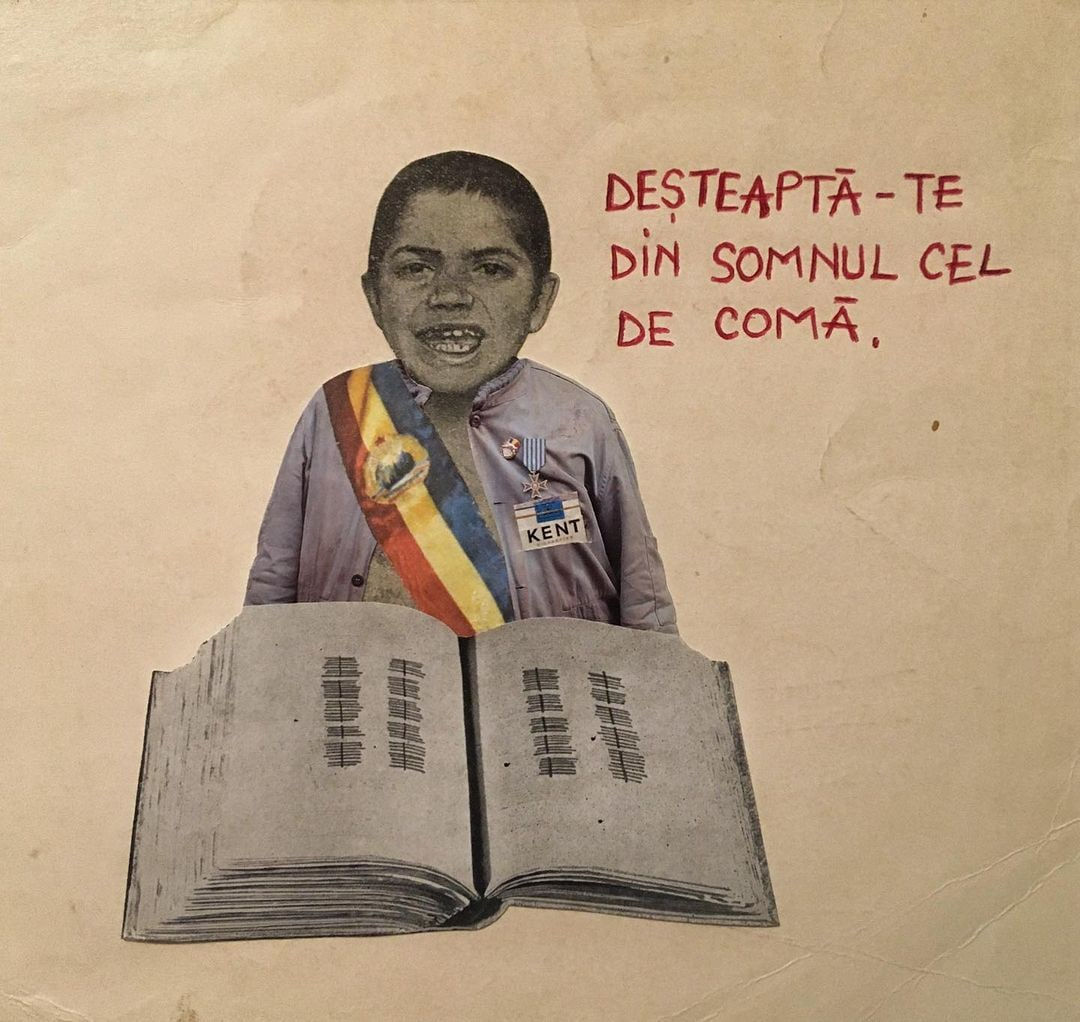 DEȘTEAPTĂ-TE
DIN SOMNUL CEL
DE COMĂ.
KENT